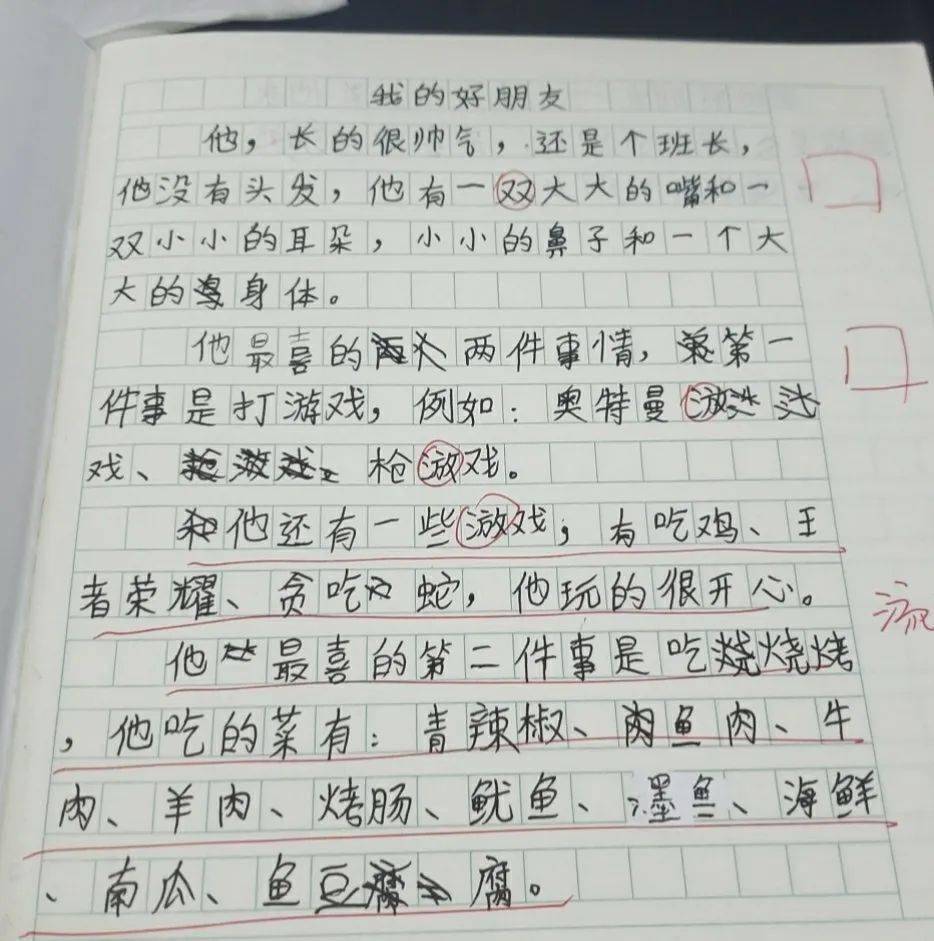 我的好朋友
他，长的很帅气，还是个班长，
他没有头发，他有一双大大的嘴和一
双小小的耳朵，小小的鼻子和一个大
大的身体。
他最喜的两件事情，第一
件事是打游戏，例如：奥特曼游
戏、枪游戏。
他还有一些游戏；有吃鸡、王
者荣耀、贪吃蛇，他玩的很开心。
他最喜的第二件事是吃烧烧烤
，他吃的菜有：青辣椒、肉鱼肉、牛
肉、羊肉、烤肠、鱿鱼、墨鱼、海鲜
、南瓜、鱼豆腐。